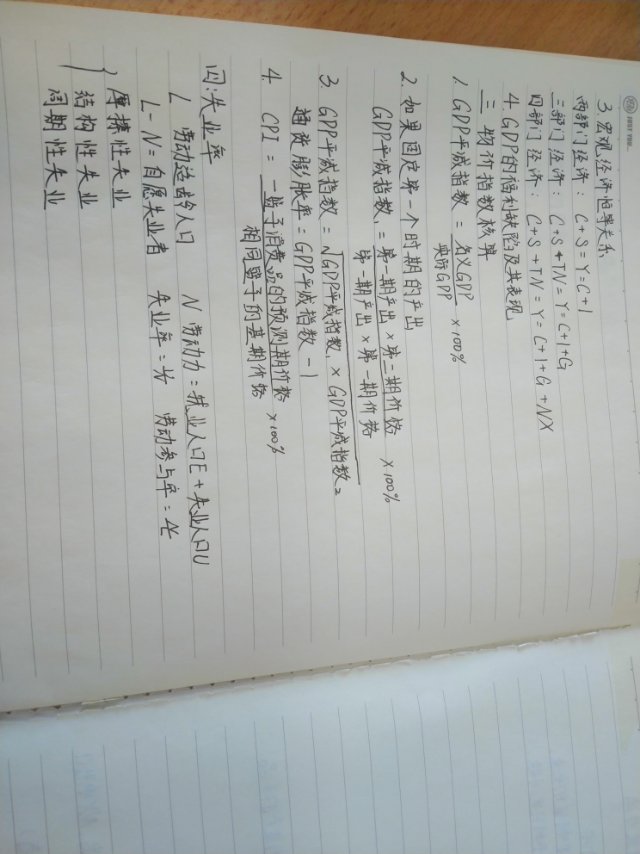 3. 宏观经济恒等关系
两部门经济: C+S=Y=C+I
三部门经济: C+S+TN=Y=C+I+G
四部门经济: C+S+TN=Y=C+I+G+NX
4. GDP的福利缺陷及其表现
三 物价指数核算
1. GDP平减指数 = 名义GDP / 实际GDP ×100%
2. 如果固定第一个时期的产出
GDP平减指数1 = 第一期产出×第二期价格 / 第一期产出×第一期价格 ×100%
3. GDP平减指数 = √GDP平减指数1×GDP平减指数2
通货膨胀率=GDP平减指数-1
4. CPI = 一篮子消费品的预测期价格 / 相同篮子的基期价格 ×100%
四. 失业率
L 劳动适龄人口 N 劳动力=就业人口E+失业人口U
L-N=自愿失业者 失业率= 劳动参与率=
摩擦性失业
结构性失业
周期性失业